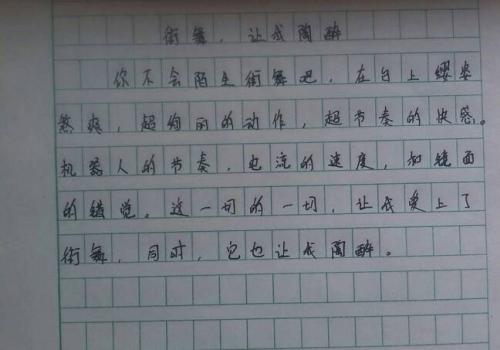 街舞,让我陶醉
你不会陌生街舞吧,在台上缨姿
煞爽,超绚丽的动作,超节奏的快感。
机器人的节奏,电流的速度,和镜面
的错觉。这一切的一切,让我爱上了
街舞,同时,它也让我陶醉。